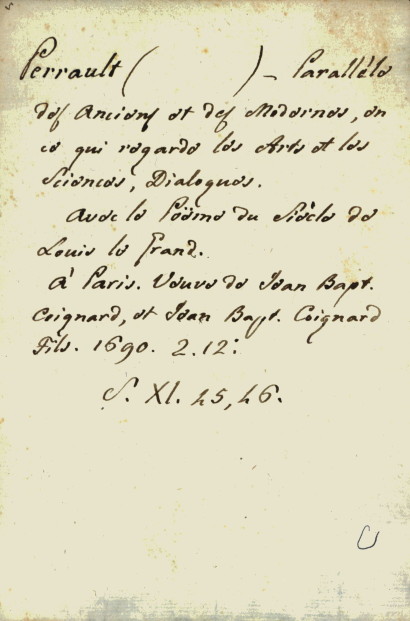 Perrault (            ) – Parallèle
des Anciens et des Modernes, en
ce qui regarde les Arts et les
Sciences, Dialogues.
Avec le Poëme du Siècle de
Louis le Grand.
A' Paris. Veuve de Jean Bapt.
Coignard, et Jean Bapt. Coignard
Fils. 1690. 2. 12:
S. XI. 45, 46.